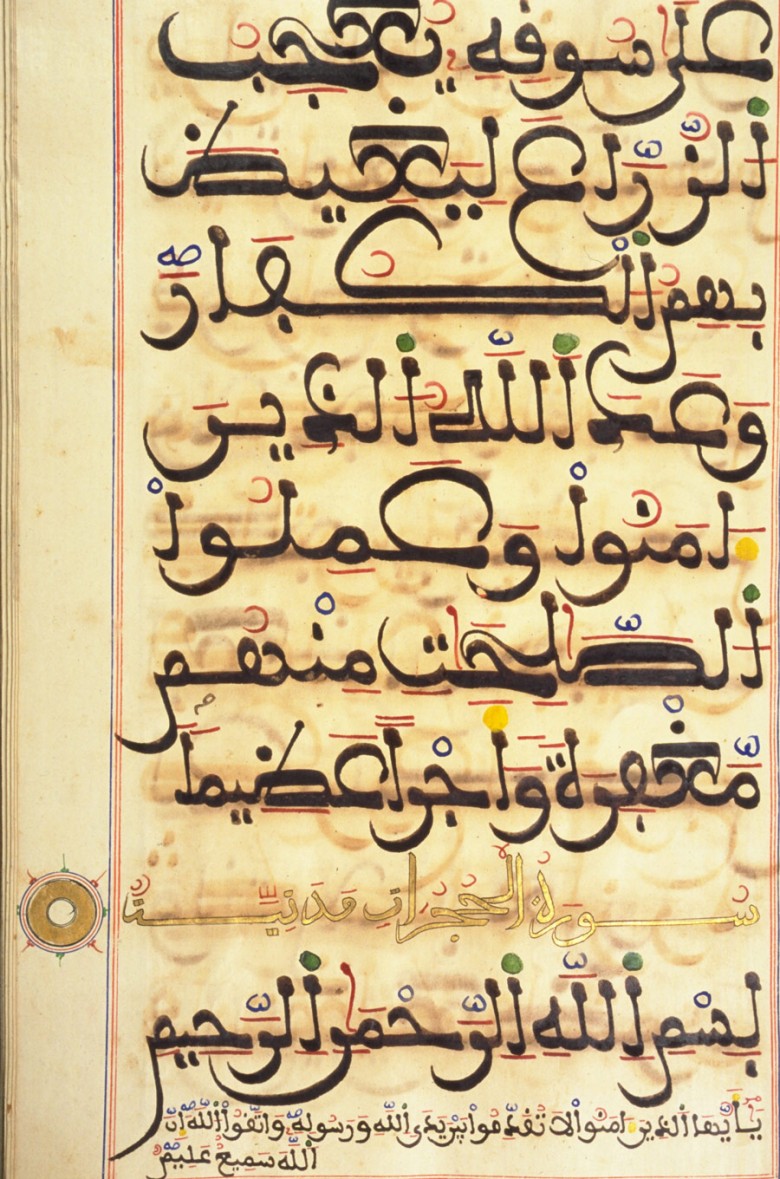 عَلَىٰ سُوقِهِۦ يُعْجِبُ
اُ۬لزُّرَّاعَ لِيَغِيظَ
بِهِمُ اُ۬لْكُفَّارَۗ
وَعَدَ اَ۬للَّهُ اُ۬لذِينَ
ءَامَنُواْ وَعَمِلُواْ
اُ۬لصَّٰلِحَٰتِ مِنْهُم
مَّغْفِرَةً وَأَجْراً عَظِيماً
سورة الحجرات مدنية
بِسْمِ اِ۬للَّهِ اِ۬لرَّحْمَٰنِ اِ۬لرَّحِيمِ
يَٰأَيُّهَا اَ۬لذِينَ ءَامَنُواْ لَا تُقَدِّمُواْ بَيْنَ يَدَيِ اِ۬للَّهِ وَرَسُولِهِۦ وَاتَّقُواْ اُ۬للَّهَ إِنَّ
اَ۬للَّهَ سَمِيعٌ عَلِيمٌ